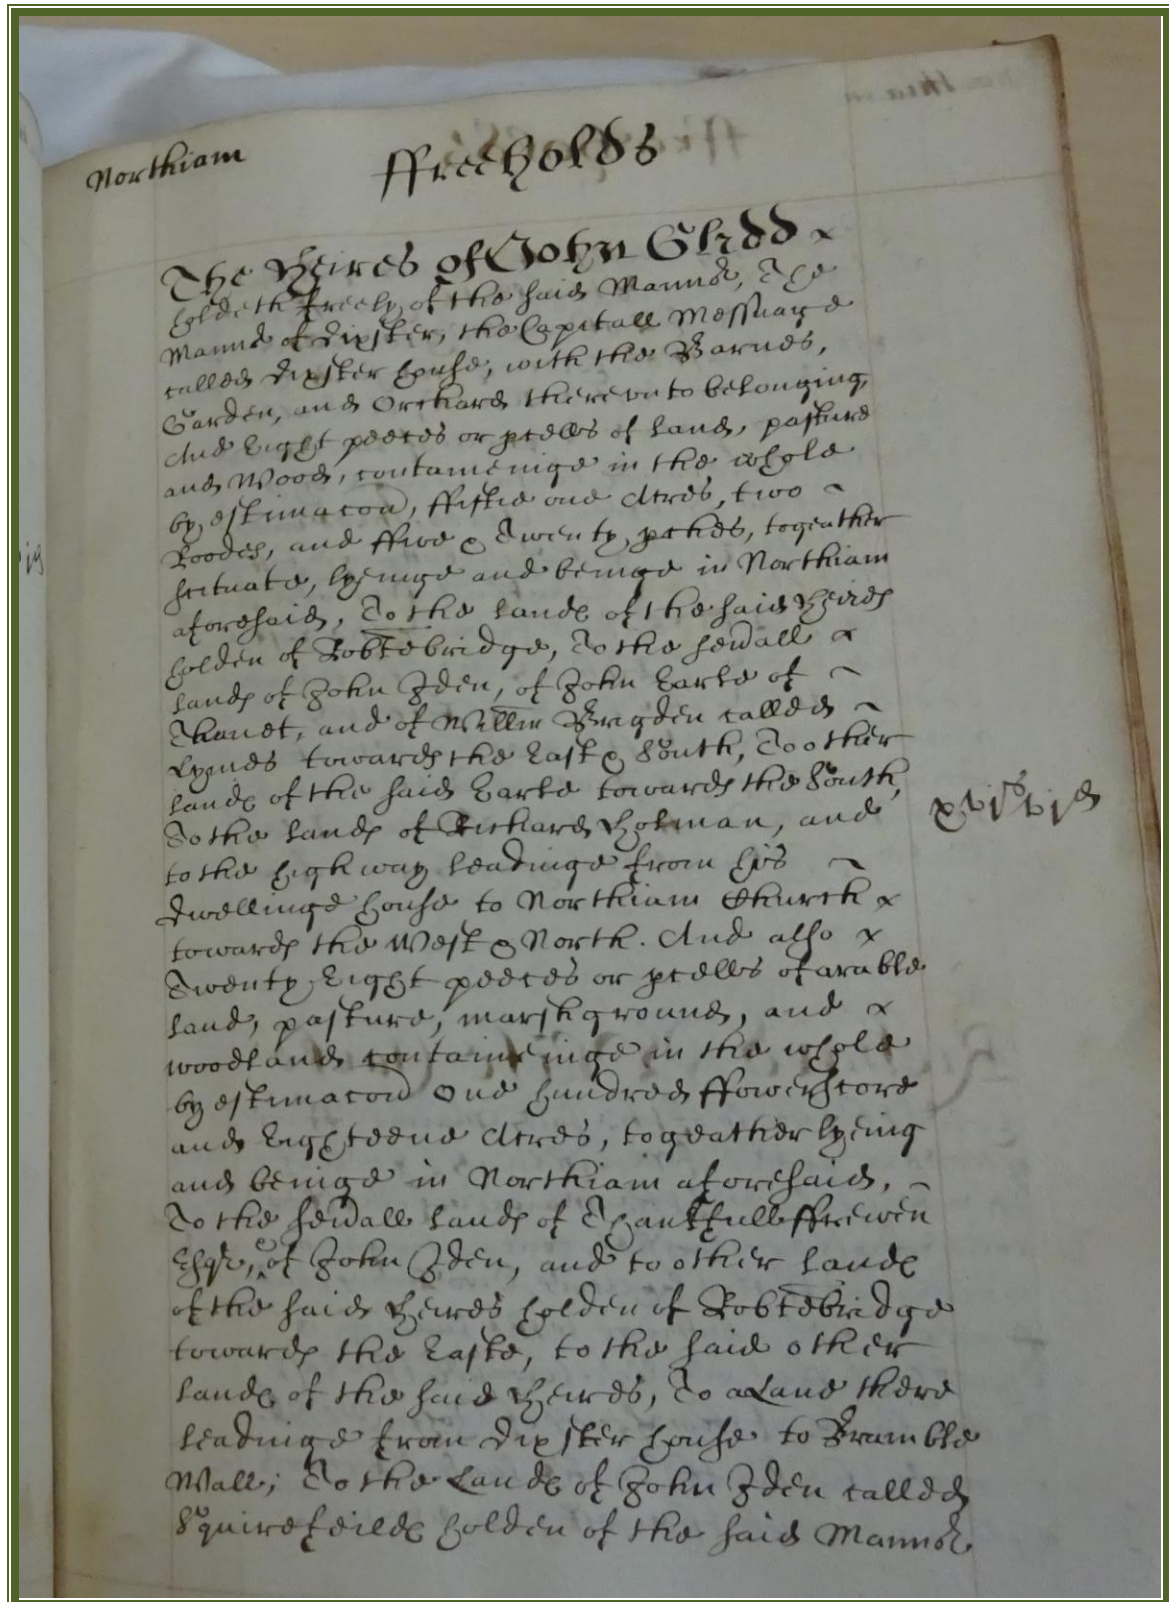 Northiam
ffreeholds
The Heires of John Glidd
holdeth freely of the said Mannor, The
Mannor of Dixster, the Capitall Messuage
called Dixster house, with the Barnes,
Garden, and Orchard therevnto belonging,
And Eight peeces or pcells of land, pasture
and Wood, conteineinge in the whole
by estimacon, ffiftie one Acres, two
Roodes, and ffive & Twenty pches, togeather
scituate, lyeinge and beinge in Northiam
aforesaid, To the landes of the said Heires
holden of Robtebridge, To the seuall
landes of John Iden, of John Earle of
Thanet, and of Willm Brigden called
Lymes towardes the East & South, To other
landes of the said Earle towardes the South,
To the landes of Richard Holman, and
xvjs vjd
to the highway leadinge from his
dwellinge house to Northiam Church
towardes the West & North. And also
Twenty Eight peeces or pcells of arable
land, pasture, marshground, and
woodland conteineinge in the whole
by estimacon One hundred ffowerscore
and Eighteene Acres, togeather lyeing
and beinge in Northiam aforesaid,
To the seuall landes of Thankfull ffrewen
Esqr, of John Iden, and to other landes
of the said Heires holden of Robtebridge
towardes the Easte, to the said other
landes of the said Heires, To a Lane there
leadinge from Dixster house to Bramble
Wall; To the Landes of John Iden called
Squirefeildes holden of the said Mannor